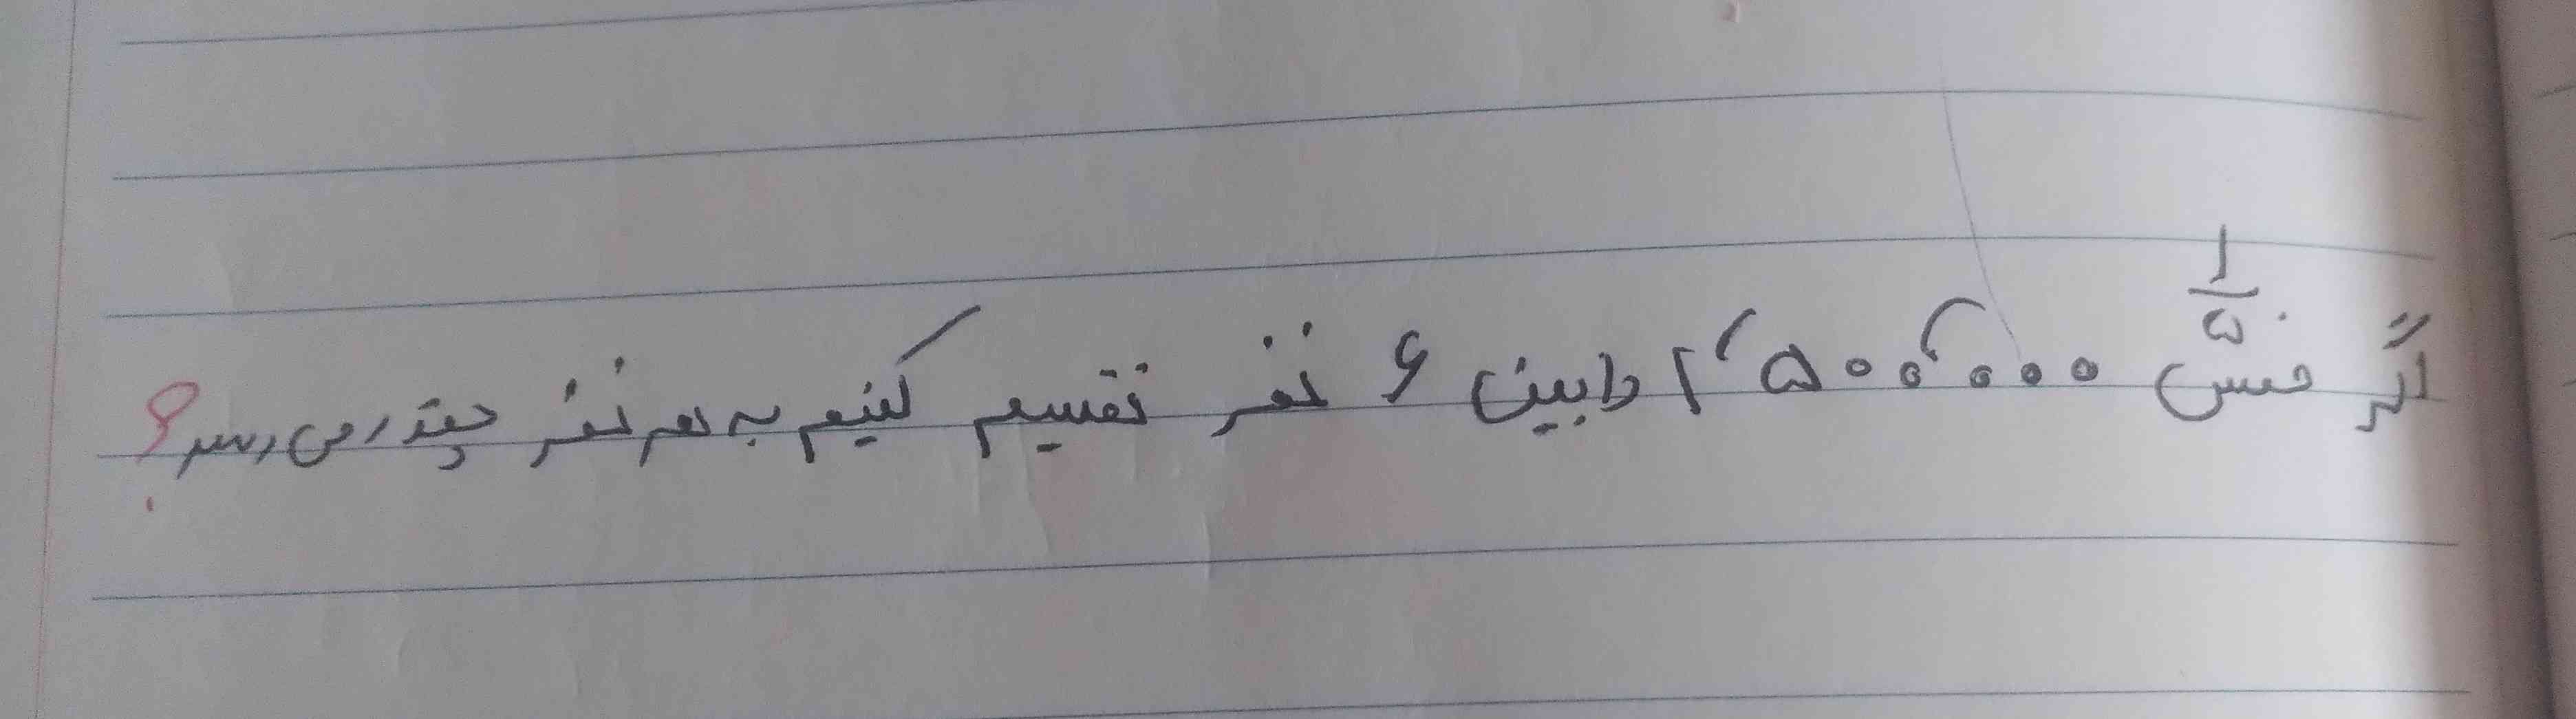 ۱/۵
اگر خمس ۲٬۵۰۰٬۰۰۰ را بین ۶ نفر تقسیم کنیم به هر نفر چقدر می رسد؟